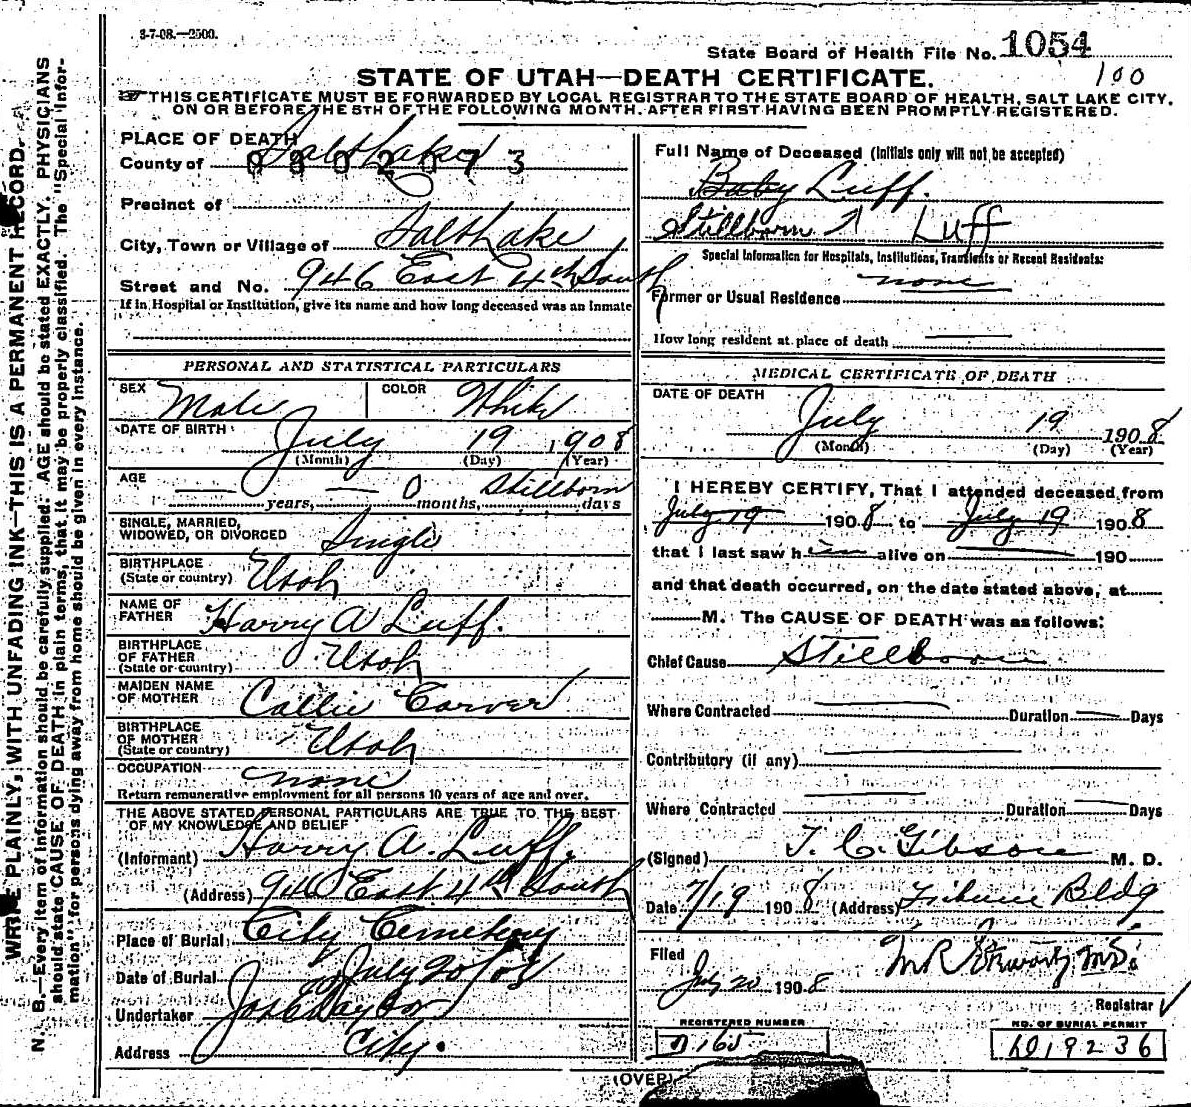 3-7-08.—2500.
State Board of Health File No. 1054
100
STATE OF UTAH—DEATH CERTIFICATE.
THIS CERTIFICATE MUST BE FORWARDED BY LOCAL REGISTRAR TO THE STATE BOARD OF HEALTH, SALT LAKE CITY,
ON OR BEFORE THE 5TH OF THE FOLLOWING MONTH. AFTER FIRST HAVING BEEN PROMPTLY REGISTERED.
WRITE PLAINLY, WITH UNFADING INK—THIS IS A PERMANENT RECORD.
N. B.—Every item of information should be carefully supplied. AGE should be stated EXACTLY. PHYSICIANS
should state CAUSE OF DEATH in plain terms, that it may be properly classified. The "Special Infor-
mation" for persons dying away from home should be given in every instance.
PLACE OF DEATH
County of Salt Lake
0802073
Precinct of
City, Town or Village of Salt Lake
Street and No. 946 East 4th South
If in Hospital or Institution, give its name and how long deceased was an inmate
PERSONAL AND STATISTICAL PARTICULARS
SEX Male COLOR White
DATE OF BIRTH July 19 1908
(Month) (Day) (Year)
AGE — years, — 0 months, Stillborn days
SINGLE, MARRIED,
WIDOWED, OR DIVORCED Single
BIRTHPLACE
(State or country) Utah
NAME OF
FATHER Harry A Luff.
BIRTHPLACE
OF FATHER
(State or country) Utah
MAIDEN NAME
OF MOTHER Callie Carver
BIRTHPLACE
OF MOTHER
(State or country) Utah
OCCUPATION none
Return remunerative employment for all persons 10 years of age and over.
THE ABOVE STATED PERSONAL PARTICULARS ARE TRUE TO THE BEST
OF MY KNOWLEDGE AND BELIEF
(Informant) Harry A. Luff.
(Address) 946 East 4th South
Place of Burial City Cemetery
Date of Burial July 20/08
Undertaker Jos E Taylor
Address City.
Full Name of Deceased (Initials only will not be accepted)
Baby Luff.
Stillborn Luff
Special Information for Hospitals, Institutions, Transients or Recent Residents:
Former or Usual Residence none
How long resident at place of death
MEDICAL CERTIFICATE OF DEATH
DATE OF DEATH
July 19 1908
(Month) (Day) (Year)
I HEREBY CERTIFY, That I attended deceased from
July 19 1908 to July 19 1908
that I last saw him alive on 190
and that death occurred, on the date stated above, at
M. The CAUSE OF DEATH was as follows:
Chief Cause Stillborn
Where Contracted Duration Days
Contributory (if any)
Where Contracted Duration Days
(Signed) T. C. Gibson M. D.
Date 7/19 1908 (Address) Tribune Bldg
Filed
July 20 1908 M R Stewart, M.D.
Registrar
REGISTERED NUMBER
165
NO. OF BURIAL PERMIT
19236
(OVER)